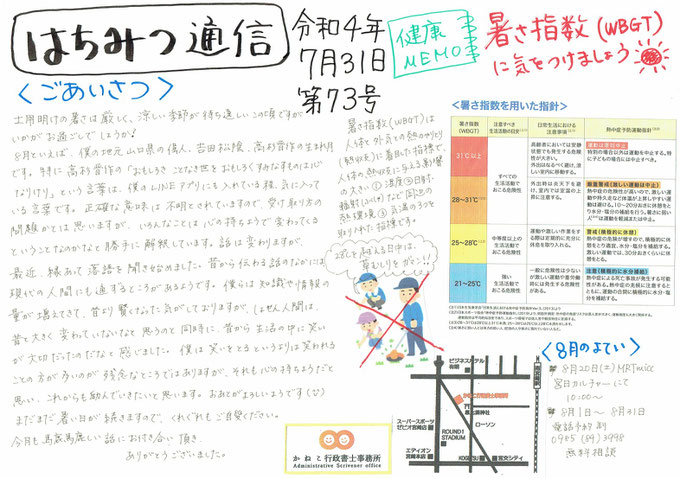 はちみつ通信
令和4年
7月31日
第73号
健康
MEMO
暑さ指数(WBGT)
に気をつけましょう
<ごあいさつ>
土用明けの暑さは厳しく、涼しい季節が待ち遠しいこの頃ですが
いかがお過ごしでしょうか!
8月といえば、僕の地元山口県の偉人、吉田松陰、高杉晋作の生まれ月
です。特に高杉晋作の「おもしろきこともなき世をおもしろくすみなすものは心
なりけり」という言葉は、僕のLINEアプリにも入れている程、気に入って
いる言葉です。正確な意味は不明とされていますので、受け取り方の
問題かとは思いますが、いろんなことは心の持ちようで変わってくる
ということなのかなと勝手に解釈しています。話は変わりますが、
最近、積あて落語を聞き始めました。昔から伝わる話のなかには
現代の人間にも通ずるところがあるようです。僕らは知識や情報の
量が増えてきて、昔より賢くなった気がしておりますが、しょせん人間は、
昔と大きく変わっていないなと思うのと同時に、昔から生活の中に笑い
が大切だったのだなと感じました。僕は笑いをとるというよりは笑われる
ことの方が多いのが残念なところではありますが、それも心の持ちようだと
思い、これからも励んでいきたいと思います。おあとがよろしいようです(ぴ)
まだまだ暑い日が続きますので、くれぐれもご自愛ください。
今月も馬鹿馬鹿しい話にお付き合い頂き
ありがとうございました。
暑さ指数(WBGT)は
人体と外気との熱のやりとり
(熱収支)に着目した指標で、
人体の熱収支に与える影響
の大きい ①湿度 ②日射・
輻射(ふくしゃ)など周辺の
熱環境 ③気温の3つを
取り入れた指標です。
28℃を超える日中は、
草むしりもガマン!!
<暑さ指数を用いた指針>
暑さ指数
(WBGT)
注意すべき
生活活動の目安
日常生活における
注意事項
熱中症予防運動指針
31℃以上
すべての
生活活動で
おこる危険性
高齢者においては安静
状態でも発生する危険
性が大きい。
外出はなるべく避け、涼
しい室内に移動する。
運動は原則中止
特別の場合以外は運動を中止する。特
に子どもの場合には中止すべき。
28~31℃
外出時は炎天下を避
け、室内では室温の上
昇に注意する。
厳重警戒(激しい運動は中止)
熱中症の危険性が高いので、激しい運
動や持久走など体温が上昇しやすい運
動は避ける。10~20分おきに休憩をと
り水分・塩分の補給を行う。暑さに弱い
人は運動を軽減または中止。
25~28℃
中等度以上の
生活活動で
おこる危険性
運動や激しい作業をす
る際は定期的に充分に
休息を取り入れる。
警戒(積極的に休憩)
熱中症の危険が増すので、積極的に休憩
をとり適宜、水分・塩分を補給する。
激しい運動では、30分おきくらいに休憩
をとる。
21~25℃
強い
生活活動で
おこる危険性
一般に危険性は少ない
が激しい運動や重労働
時には発生する危険性
がある。
注意(積極的に水分補給)
熱中症による死亡事故が発生する可能性
がある。熱中症の兆候に注意するとと
もに、運動の合間に積極的に水分・塩分
を補給する。
かねこ行政書士事務所
Administrative Scrivener office
ビジネスホテル
有明
南宮崎駅
かねこ行政書士事務所
恵比寿神社
スーパースポーツ
ゼビオ宮崎店
ローソン
ROUND1
STADIUM
エディオン
宮崎本店
KOGATSU
宮交シティ
<8月のよてい>
8月20日(土) MRTmicc
宮日カルチャーにて
10:00~
8月1日~8月31日
電話予約制
無料相談